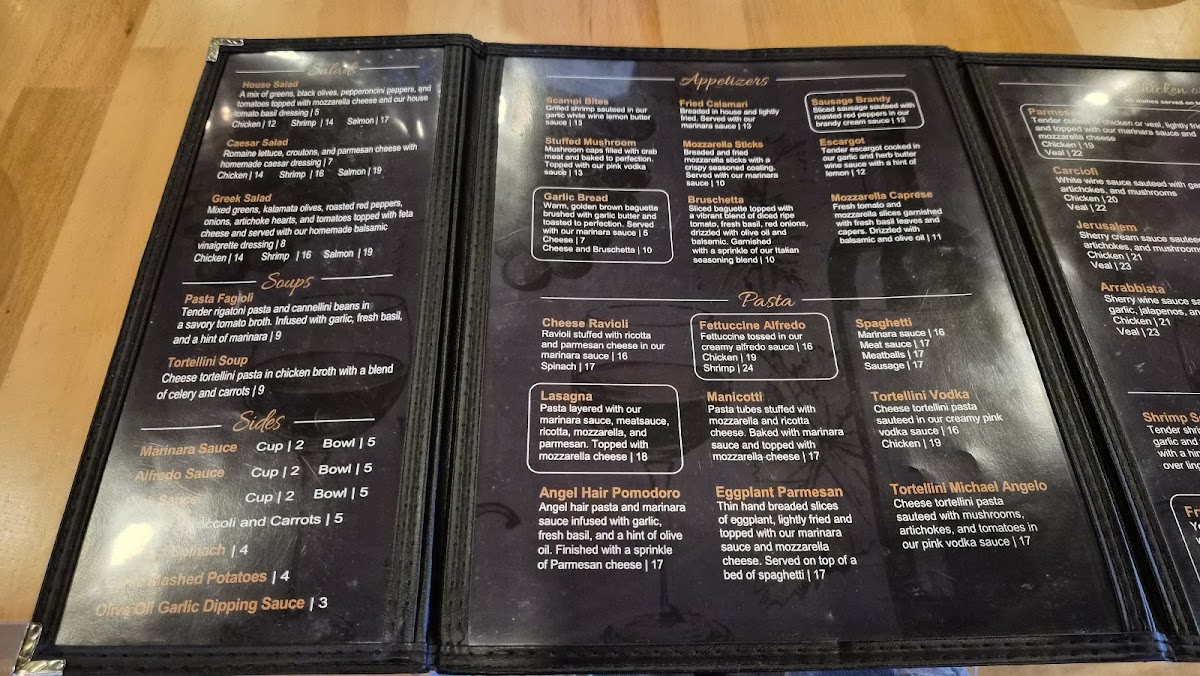 Salads
House Salad
A mix of greens, black olives, pepperoncini peppers, and
tomatoes topped with mozzarella cheese and our house
tomato basil dressing | 5
Chicken | 12 Shrimp | 14 Salmon | 17
Caesar Salad
Romaine lettuce, croutons, and parmesan cheese with
homemade caesar dressing | 7
Chicken | 14 Shrimp | 16 Salmon | 19
Greek Salad
Mixed greens, kalamata olives, roasted red peppers,
onions, artichoke hearts, and tomatoes topped with feta
cheese and served with our homemade balsamic
vinaigrette dressing | 8
Chicken | 14 Shrimp | 16 Salmon | 19
Soups
Pasta Fagioli
Tender rigatoni pasta and cannellini beans in
a savory tomato broth. Infused with garlic, fresh basil,
and a hint of marinara | 9
Tortellini Soup
Cheese tortellini pasta in chicken broth with a blend
of celery and carrots | 9
Sides
Marinara Sauce Cup | 2 Bowl | 5
Alfredo Sauce Cup | 2 Bowl | 5
Sauce Cup | 2 Bowl | 5
and Carrots | 5
Spinach | 4
Mashed Potatoes | 4
Olive Oil Garlic Dipping Sauce | 3
Appetizers
Scampi Bites
Grilled shrimp sauteed in our
garlic white wine lemon butter
sauce | 13
Stuffed Mushroom
Mushroom caps filled with crab
meat and baked to perfection.
Topped with our pink vodka
sauce | 13
Garlic Bread
Warm, golden brown baguette
brushed with garlic butter and
toasted to perfection. Served
with our marinara sauce | 5
Cheese | 7
Cheese and Bruschetta | 10
Fried Calamari
Breaded in house and lightly
fried. Served with our
marinara sauce | 13
Mozzarella Sticks
Breaded and fried
mozzarella sticks with a
crispy seasoned coating.
Served with our marinara
sauce | 10
Bruschetta
Sliced baguette topped with
a vibrant blend of diced ripe
tomato, fresh basil, red onions,
drizzled with olive oil and
balsamic. Garnished
with a sprinkle of our Italian
seasoning blend | 10
Sausage Brandy
Sliced sausage sauteed with
roasted red peppers in our
brandy cream sauce | 13
Escargot
Tender escargot cooked in
our garlic and herb butter
wine sauce with a hint of
lemon | 12
Mozzarella Caprese
Fresh tomato and
mozzarella slices garnished
with fresh basil leaves and
capers. Drizzled with
balsamic and olive oil | 11
Pasta
Cheese Ravioli
Ravioli stuffed with ricotta
and parmesan cheese in our
marinara sauce | 16
Spinach | 17
Fettuccine Alfredo
Fettuccine tossed in our
creamy alfredo sauce | 16
Chicken | 19
Shrimp | 24
Spaghetti
Marinara sauce | 16
Meat sauce | 17
Meatballs | 17
Sausage | 17
Lasagna
Pasta layered with our
marinara sauce, meatsauce,
ricotta, mozzarella, and
parmesan. Topped with
mozzarella cheese | 18
Manicotti
Pasta tubes stuffed with
mozzarella and ricotta
cheese. Baked with marinara
sauce and topped with
mozzarella cheese | 17
Tortellini Vodka
Cheese tortellini pasta
sauteed in our creamy pink
vodka sauce | 16
Chicken | 19
Angel Hair Pomodoro
Angel hair pasta and marinara
sauce infused with garlic,
fresh basil, and a hint of olive
oil. Finished with a sprinkle
of Parmesan cheese | 17
Eggplant Parmesan
Thin hand breaded slices
of eggplant, lightly fried and
topped with our marinara
sauce and mozzarella
cheese. Served on top of a
bed of spaghetti | 17
Tortellini Michael Angelo
Cheese tortellini pasta
sauteed with mushrooms,
artichokes, and tomatoes in
our pink vodka sauce | 17
Chicken
dishes served
Tender chicken or veal, lightly
and topped with our marinara sauce and
mozzarella cheese
Chicken | 19
Veal | 22
Carciofi
White wine sauce sauteed with
artichokes, and mushrooms
Chicken | 20
Veal | 22
Jerusalem
Sherry cream sauce
artichokes, and mushrooms
Chicken | 21
Veal | 23
Arrabbiata
Sherry wine sauce
garlic, jalapenos,
Chicken | 21
Veal | 23
Shrimp
Tender
garlic and
with a
over